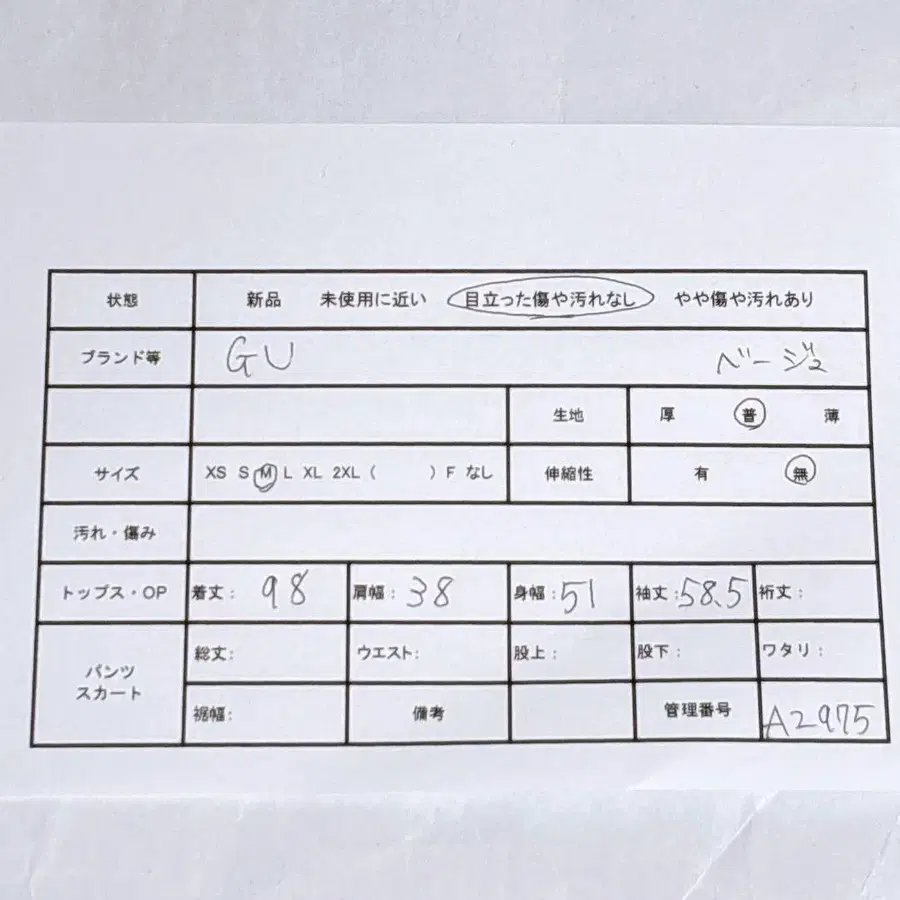 状態 新品 未使用に近い 目立った傷や汚れなし やや傷や汚れあり
ブランド等 GU ベージュ
生地 厚 普 薄
サイズ XS S M L XL 2XL ( ) F なし 伸縮性 有 無
汚れ・傷み
トップス・OP 着丈: 98 肩幅: 38 身幅: 51 袖丈: 58.5 裄丈:
パンツ スカート 総丈: ウエスト: 股上: 股下: ワタリ:
裾幅: 備考 管理番号 A2975